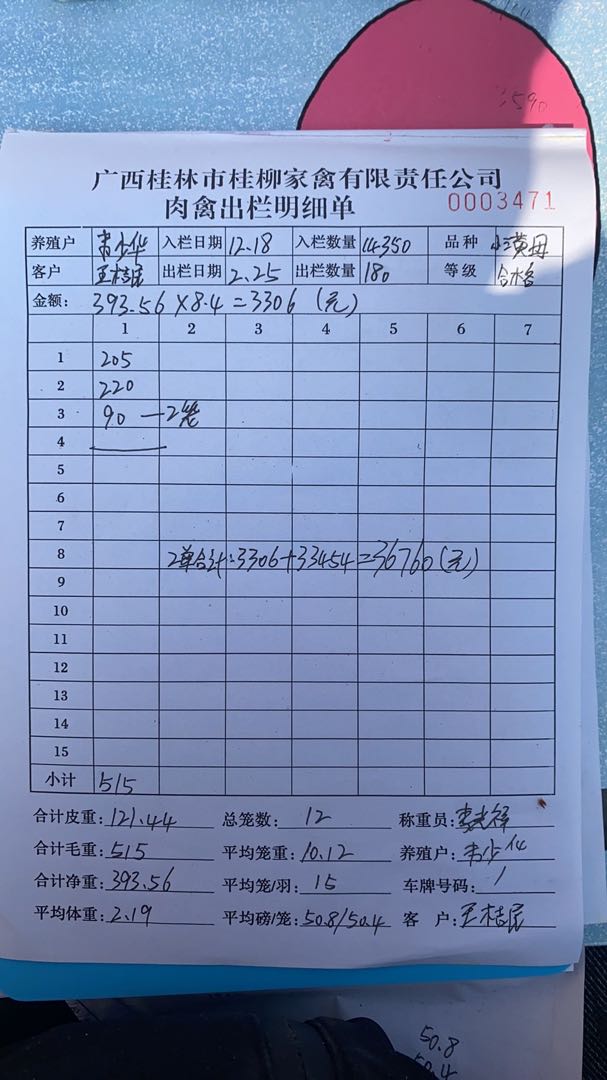 590
广西桂林市桂柳家禽有限责任公司
肉禽出栏明细单 0003471
养殖户 韦少华 入栏日期 12.18 入栏数量 14350 品种 小三黄母
客户 王桂民 出栏日期 2.25 出栏数量 180 等级 合格
金额: 393.56×8.4=3306 (元)
1 2 3 4 5 6 7
1 205
2 220
3 90 —2笼
4
5
6
7
8 2单合计:3306+33454=36760(元)
9
10
11
12
13
14
15
小计 515
合计皮重: 121.44 总笼数: 12 称重员:
合计毛重: 515 平均笼重: 10.12 养殖户: 韦少华
合计净重: 393.56 平均笼/羽: 15 车牌号码: /
平均体重: 2.19 平均磅/笼: 50.8/50.4 客 户: 王桂民
50.8
50.4